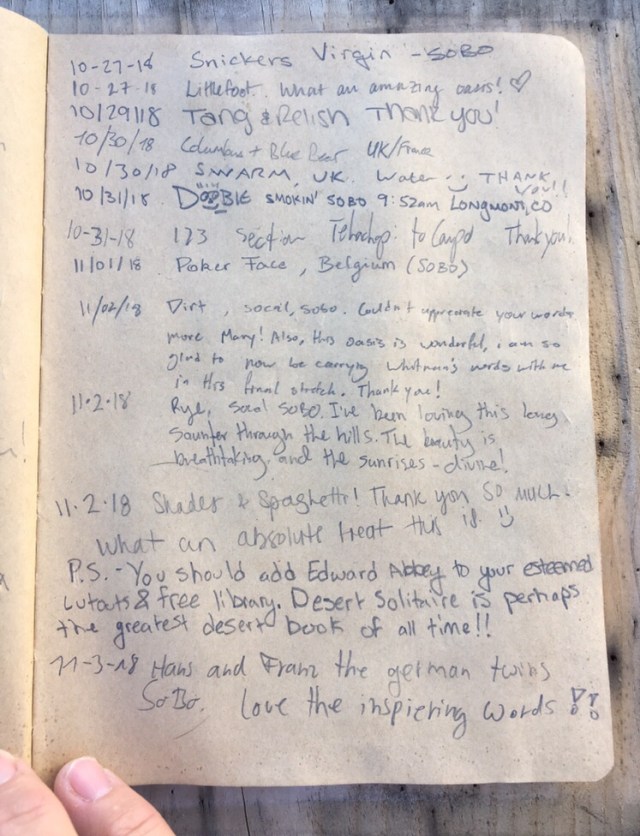 10-27-18 Snickers Virgin - SOBO
10-27-18 Littlefoot. What an amazing oasis! ♡
10/29/18 Tang & Relish Thank you!
10/30/18 Columbus + Blue Bear UK/France
10/30/18 SWARM, UK. Water :) THANK
YOU!!
10/31/18 DOBBLE SMOKIN' SOBO 9:52am LONGMONT, CO
10-31-18 123 Section Tehachapi to Thank you!
11/01/18 Poker Face, Belgium (SOBO)
11/02/18 Dirt, socal, sobo. Couldn't appreciate your words
more. Many! Also, this oasis is wonderful, i am so
glad to now be carrying Whitman's words with me
in this final stretch. Thank you!
11.2.18 Rye, Socal SOBO. I've been loving this long
saunter through the hills. The beauty is
breathtaking and the sunrises - divine!
11.2.18 Shades & Spaghetti! Thank you SO MUCH.
What an absolute treat this is :)
P.S. - You should add Edward Abbey to your esteemed
cutouts & free library. Desert Solitaire is perhaps
the greatest desert book of all time!!
11-3-18 Hans and Franz the german twins
SoBo. Love the inspiering words !!